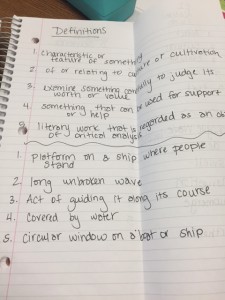 Definitions
1. Characteristic or
feature of something
2. of or relating to culture or cultivation
3. Examine something carefully to judge its
worth or value
4. something that can be used for support
or help
5. literary work that is regarded as an
of critical analysis
1. Platform on a ship where people
stand
2. long unbroken wave
3. Act of guiding it along its course
4. Covered by water
5. Circular window on a boat or ship